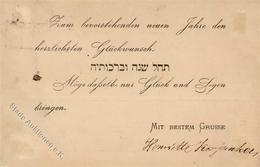 Zum bevorstehenden neuen Jahre den
herzlichsten Glückwunsch.
תחל שנה וברכותיה
Möge dasselbe nur Glück und Segen
bringen.
MIT BESTEM GRUSSE
Henriette